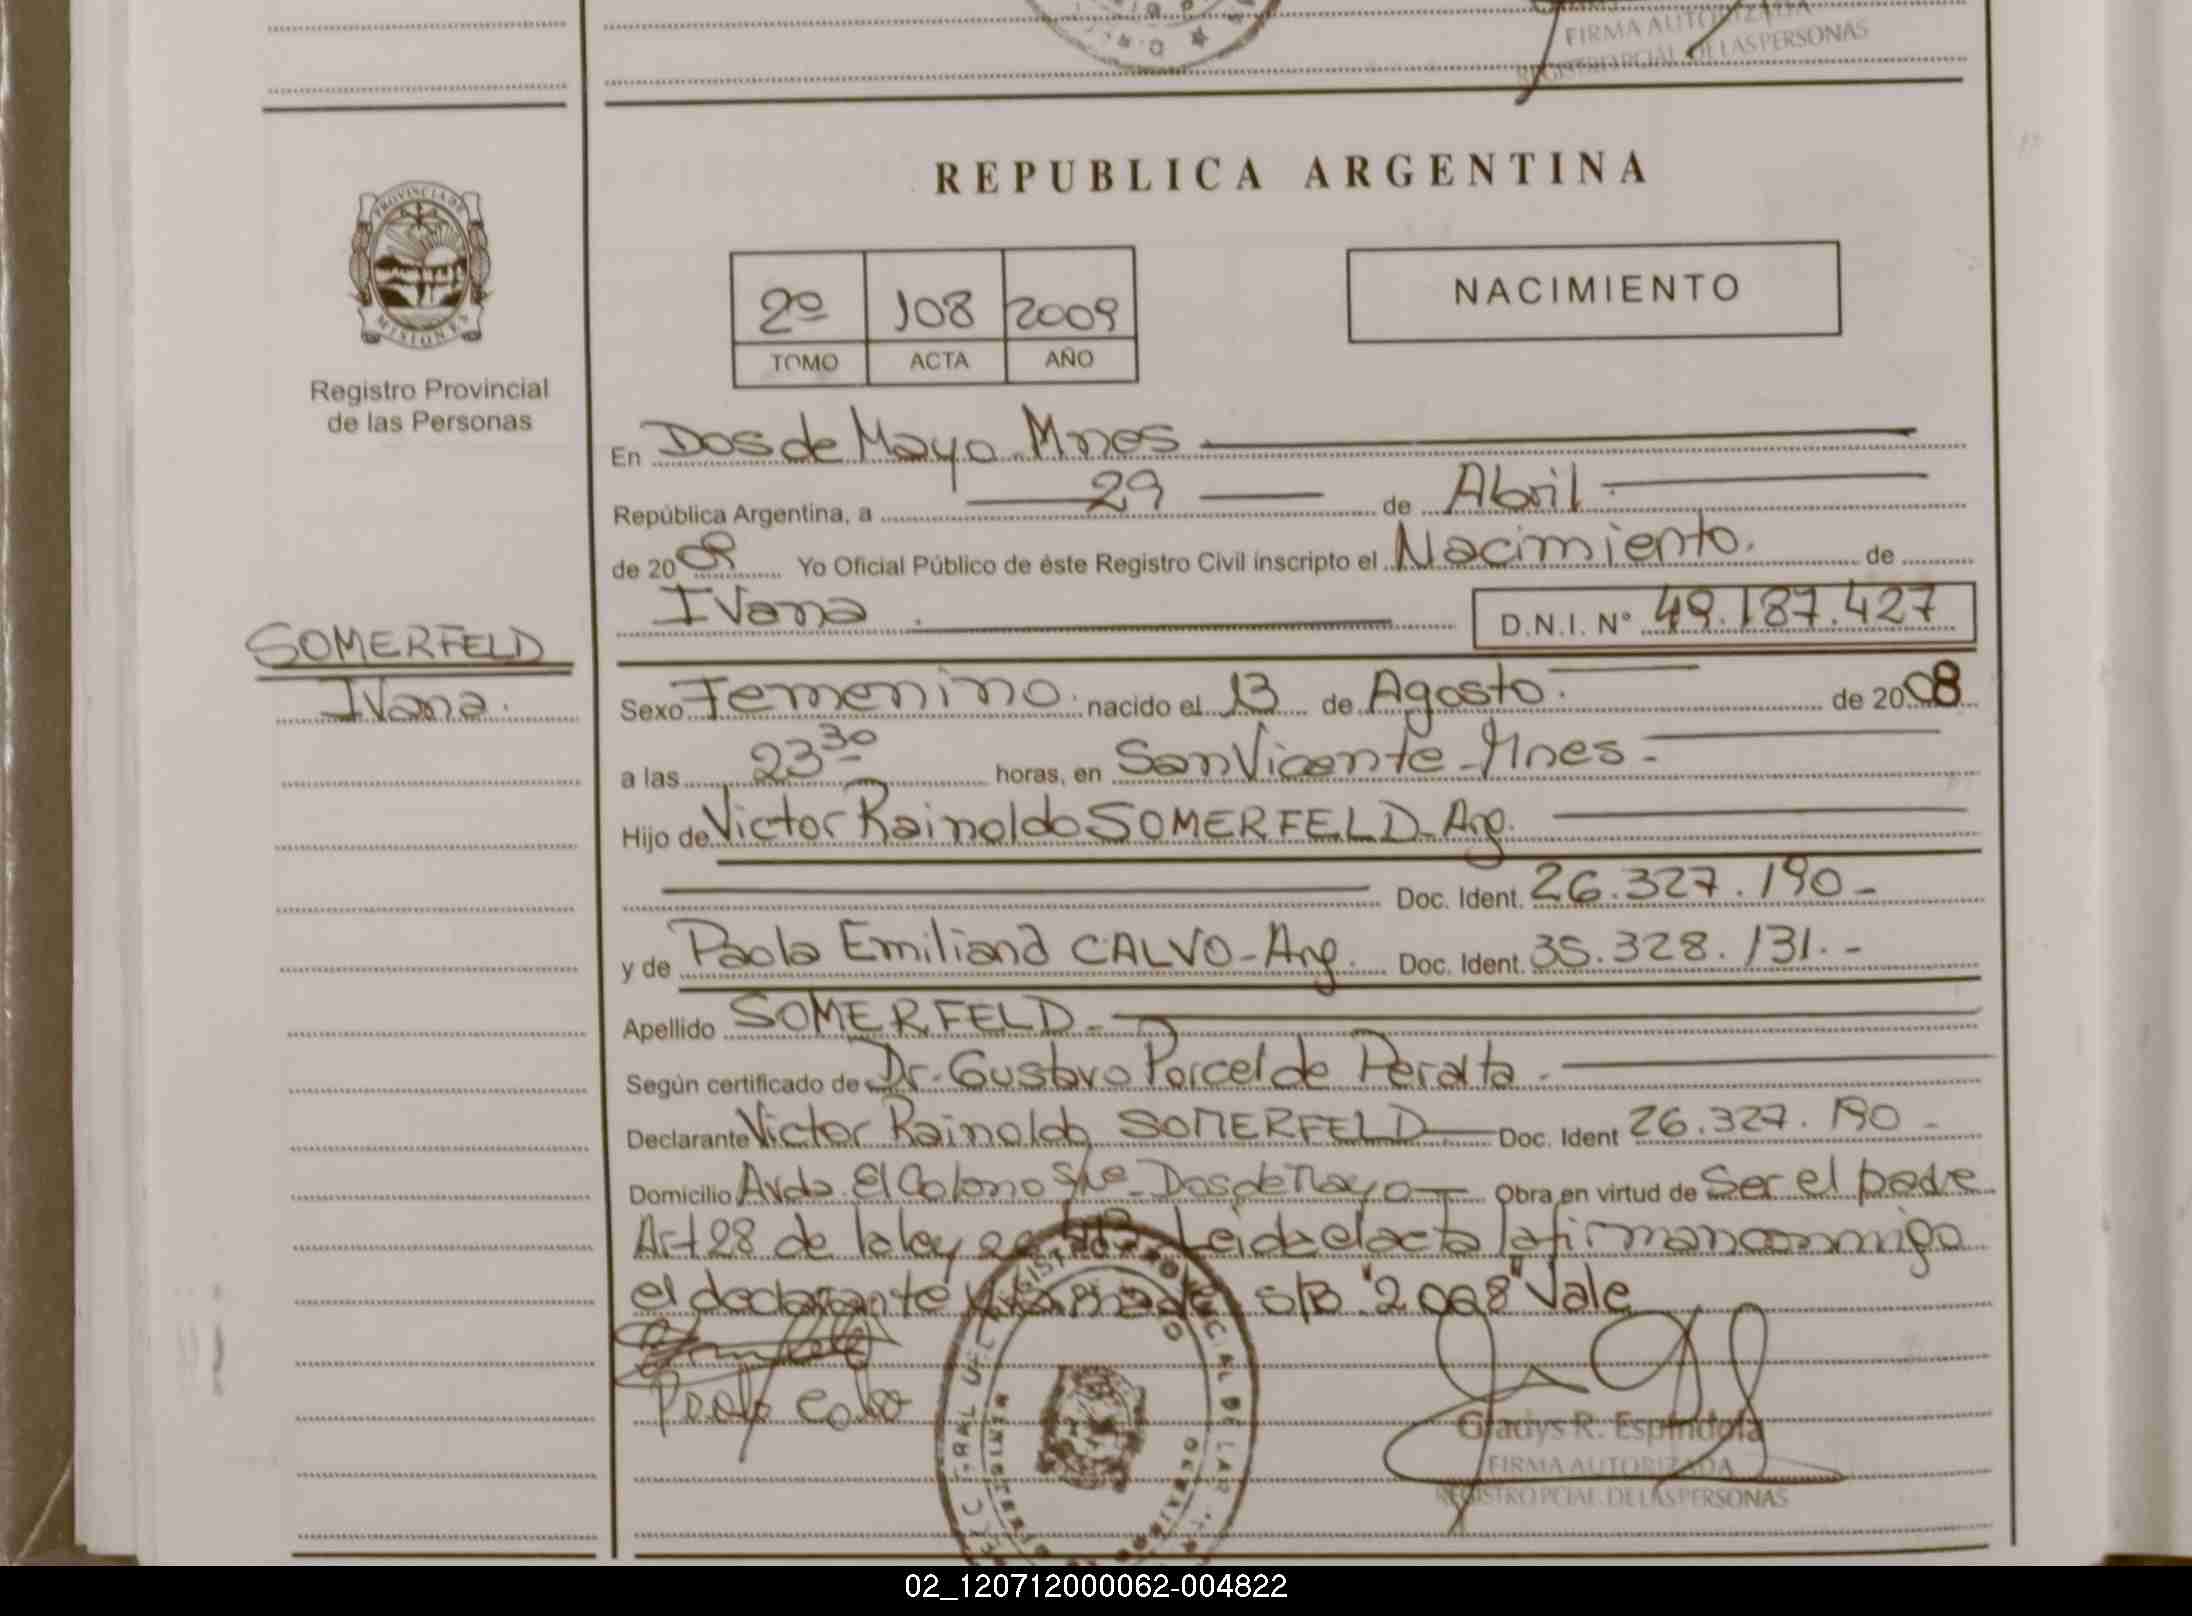 FIRMA AUTORIZADA
REGISTRO PCIAL DE LAS PERSONAS
REPUBLICA ARGENTINA
PROVINCIA DE
MISIONES
Registro Provincial
de las Personas
2º 108 2009
TOMO ACTA AÑO
NACIMIENTO
En Dos de Mayo Mnes
República Argentina, a 29 de Abril
de 2009 Yo Oficial Público de éste Registro Civil inscripto el Nacimiento. de
Ivana. D.N.I. Nº 49.187.427
SOMERFELD
Ivana.
Sexo Femenino. nacido el 13 de Agosto. de 2008
a las 23 30 horas, en San Vicente - Mnes -
Hijo de Victor Rainoldo SOMERFELD - Arg.
Doc. Ident. 26.327.190 -
y de Paola Emiliana CALVO - Arg. Doc. Ident. 35.328.131. -
Apellido SOMERFELD -
Según certificado de Dr. Gustavo Porcel de Peralta -
Declarante Victor Rainoldo SOMERFELD Doc. Ident 26.327.190 -
Domicilio Avda. El Colono S/Nº - Dos de Mayo Obra en virtud de Ser el padre
Art 28 de la ley Leida el acta la firman conmigo
el declarante y la madre S/B "2008" Vale
Paola Calvo
Gladys R. Espindola
FIRMA AUTORIZADA
REGISTRO PCIAL. DE LAS PERSONAS
02_120712000062-004822